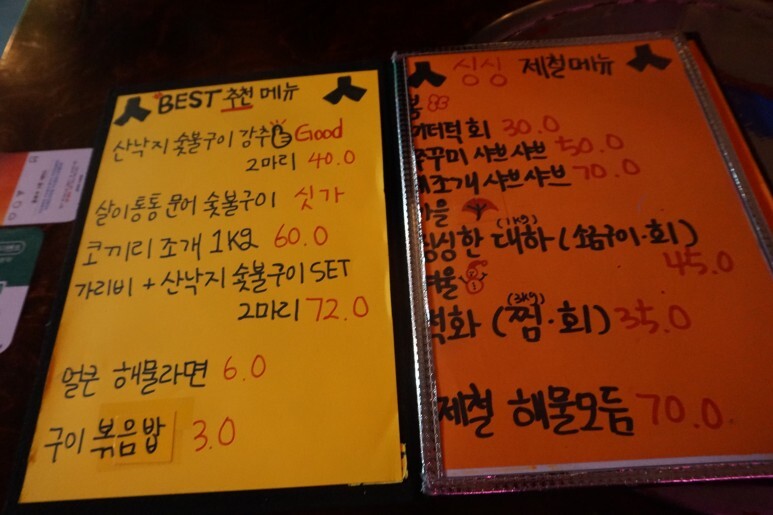 BEST 추천 메뉴
산낙지 숯불구이 강추 Good
2마리 40.0
살이통통 문어 숯불구이 싯가
코끼리 조개 1Kg 60.0
가리비 + 산낙지 숯불구이 SET
2마리 72.0
얼큰 해물라면 6.0
구이 볶음밥 3.0
싱싱 제철메뉴
봄
회 30.0
쭈꾸미 샤브샤브 50.0
조개 샤브샤브 70.0
가을
싱싱한 대하 (1Kg) (소금구이·회)
45.0
겨울
석화 (3Kg) (찜·회) 35.0
제철 해물모듬 70.0